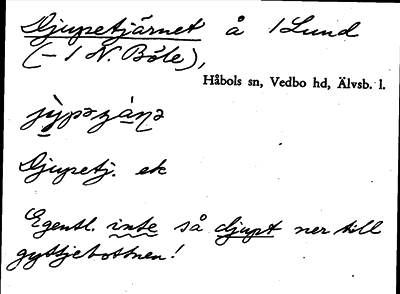 Djupetjärnet å 1 Lund
(– 1 N. Böle),
Håbols sn, Vedbo hd, Älvsb. l.
Djupetj. ek
Egentl. inte så djupt ner till
gyttjebottnen!